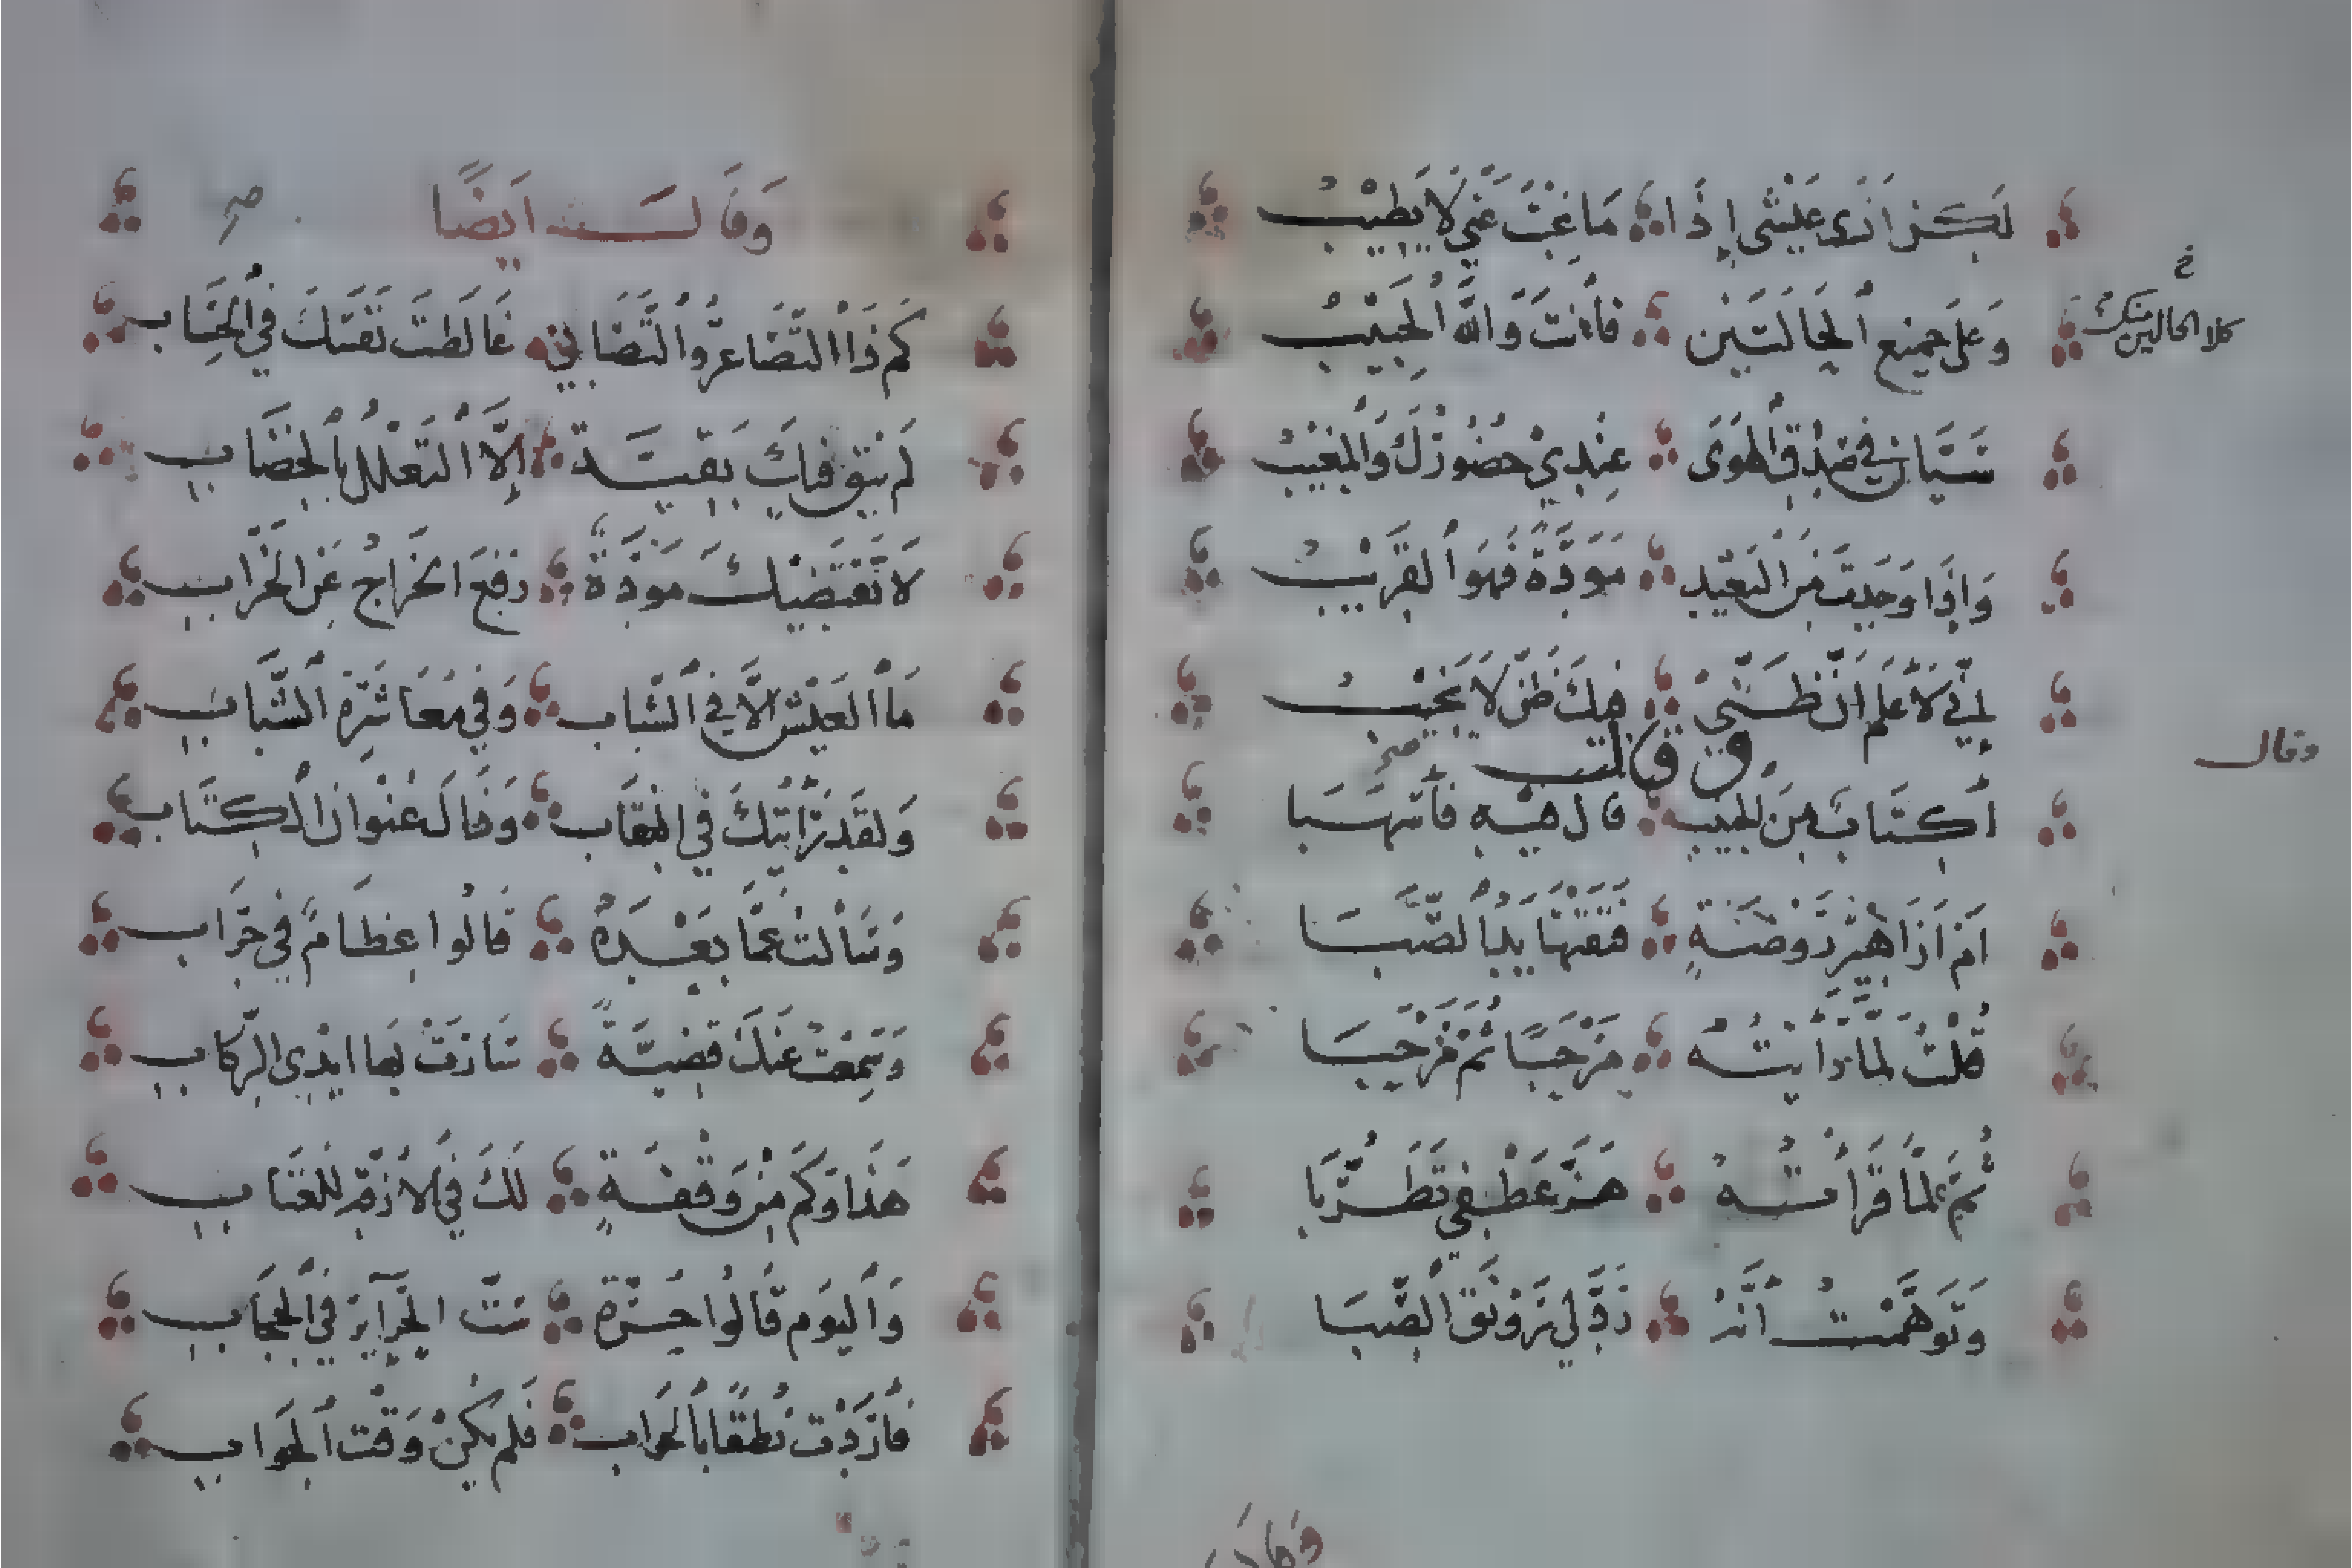 لَكِن اَرَى عَيْشى إِذَا مَا غِبْتَ عَنِّي لَا يَطِيْبُ
خ
كلا الحالين منك
وَعَلى جَميْعِ اُلحَالَتَيْن فَاَنتَ وَاللَّه اُلحَبِيْبُ
سَيَّانِ في صِدْقِ اُلهَوَى عِنْدِيْ حُضُوْرُكَ وَاُلمَغِيْبُ
وَاِذَا وَجَدتَ مِن البَعيْدِ مَوَدَّةً فَهوَ اُلقَرِيْبُ
إِنِّي لَاَعلَم اَنَّ ظَنِّيْ فِيكَ ظَنٌ لَا يَخِيْبُ
وقال
وقالـــ صح
اَكِتَابٌ مِنَ الحَبيبِ قال هيْهِ فاَسْهَبَا
اَمْ اَزَاهِيْرُ رَوْضَةٍ فَتَقَتْهَا يَدُ اُلصَّبَا
قُلْتُ لمَّا رَاَيْتُهُ مَرْحَبًا ثُمَّ مَرْحَبَا
ثُمَّ لمَّا قَرَاْتُهُ هَزَّ عَطْفِي تَطَرُّبَا
وَتَوَهَّمْتُ اَنَّهُ رَدَّ لي رَوْنَقَ اُلصِّبَا
وَقَالَ
وَقَالَــ اَيضًا صح
كَم ذَا اُلتَّصَاغرُ وَاُلتَّصَابي غَالَطتَ نَفْسَكَ في اُلحِسَابِ
لَم يَبْقَ فيكَ بَقِيَّة إِلَّا اُلتَعَلّلُ بِاُلخِضَابِ
لَا تَقْتَضِيْكَ مَوَدَّةً رَفعَ الخَرَاجُ عَنِ الخَرابِ
مَا اُلعَيْش اِلَّا فِي اُلشّبابِ وَفي مُعَاشَرَةِ اُلشَّبابِ
وَلقَد رَاَيْتُكَ في النقَابِ وَذَاكَ عُنْوانُ اُلكِتَابِ
وَسَاَلتُ عَمَّا بَعْدَهُ قَالُوا عِظَامٌ في جِرَابِ
وَسَمِعْتُ عَنكَ قَضِيَّةً سَارَتْ بهَا ايْدِى الرِّكابِ
هَذَا وَكَم مِن وَقْفَةٍ لَكَ في الاَزِقَّةِ للعتَابِ
وَاُليَوم قَالُوا حُرَّة سَتّ الحَرَآيرِ في اُلحِجَابِ
فَاَرَدْتَ نُطقًا بِاُلجَوابِ فَلم يَكُنْ وَقْتَ اُلجَوابِ